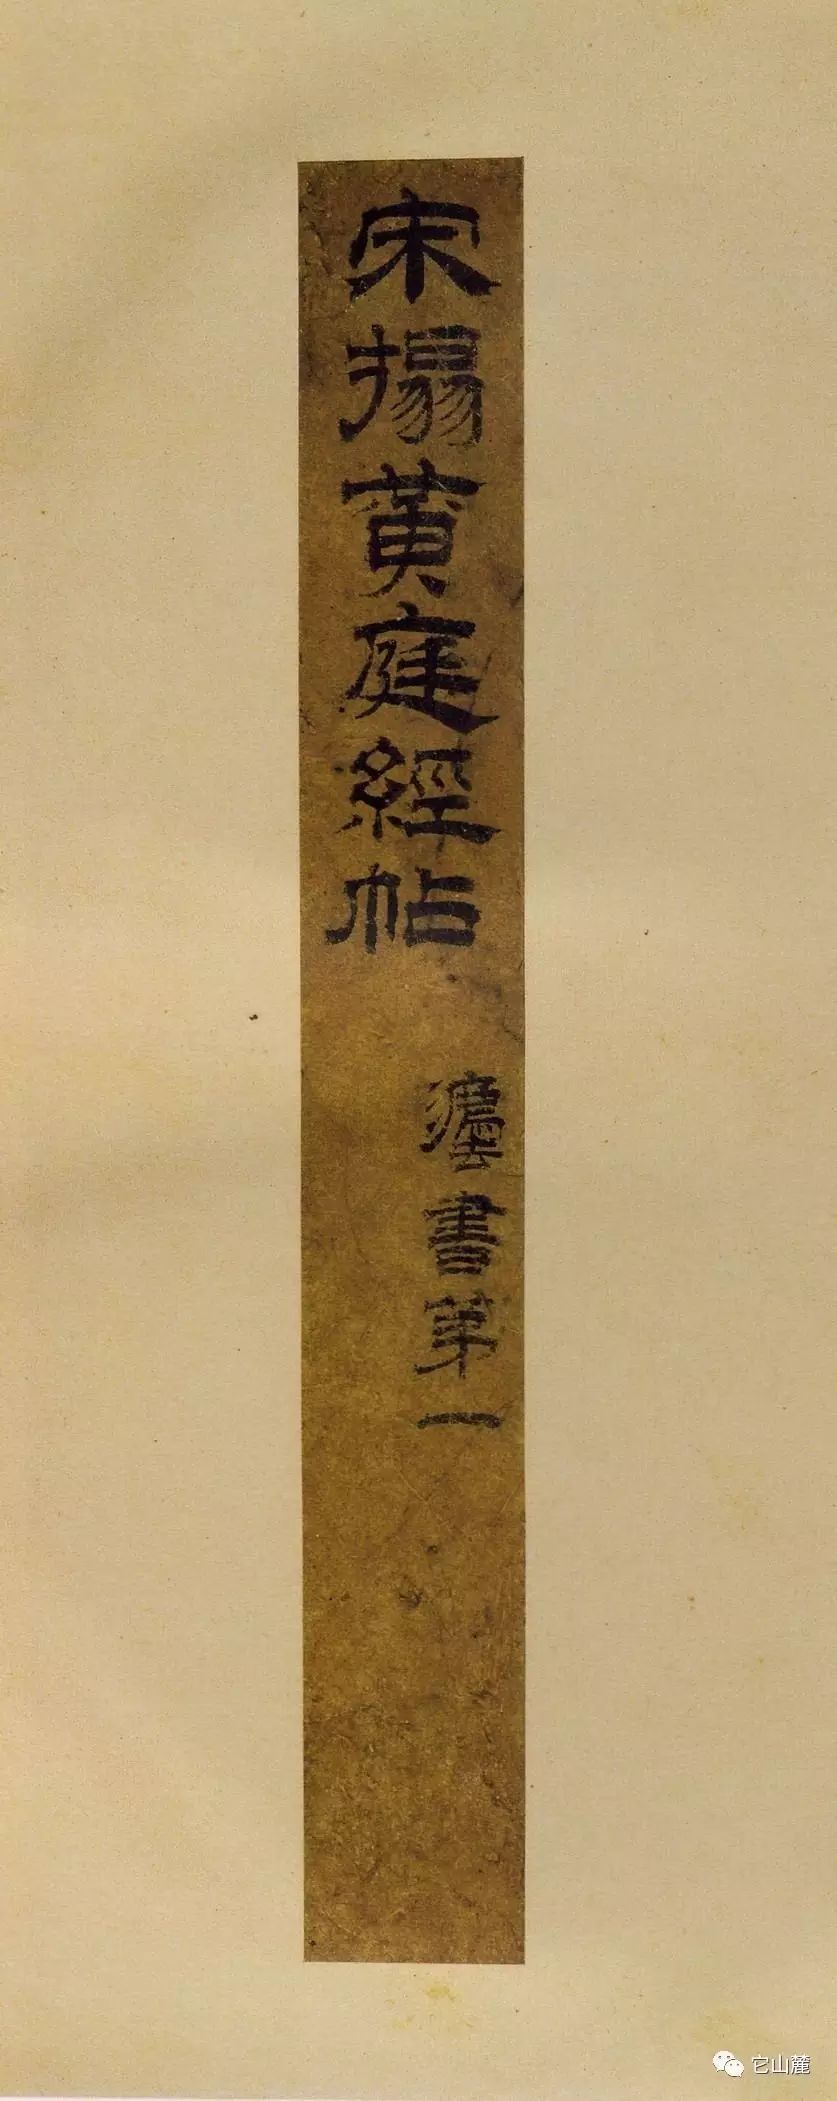 宋搨黃庭經帖
灋書第一
它山麓